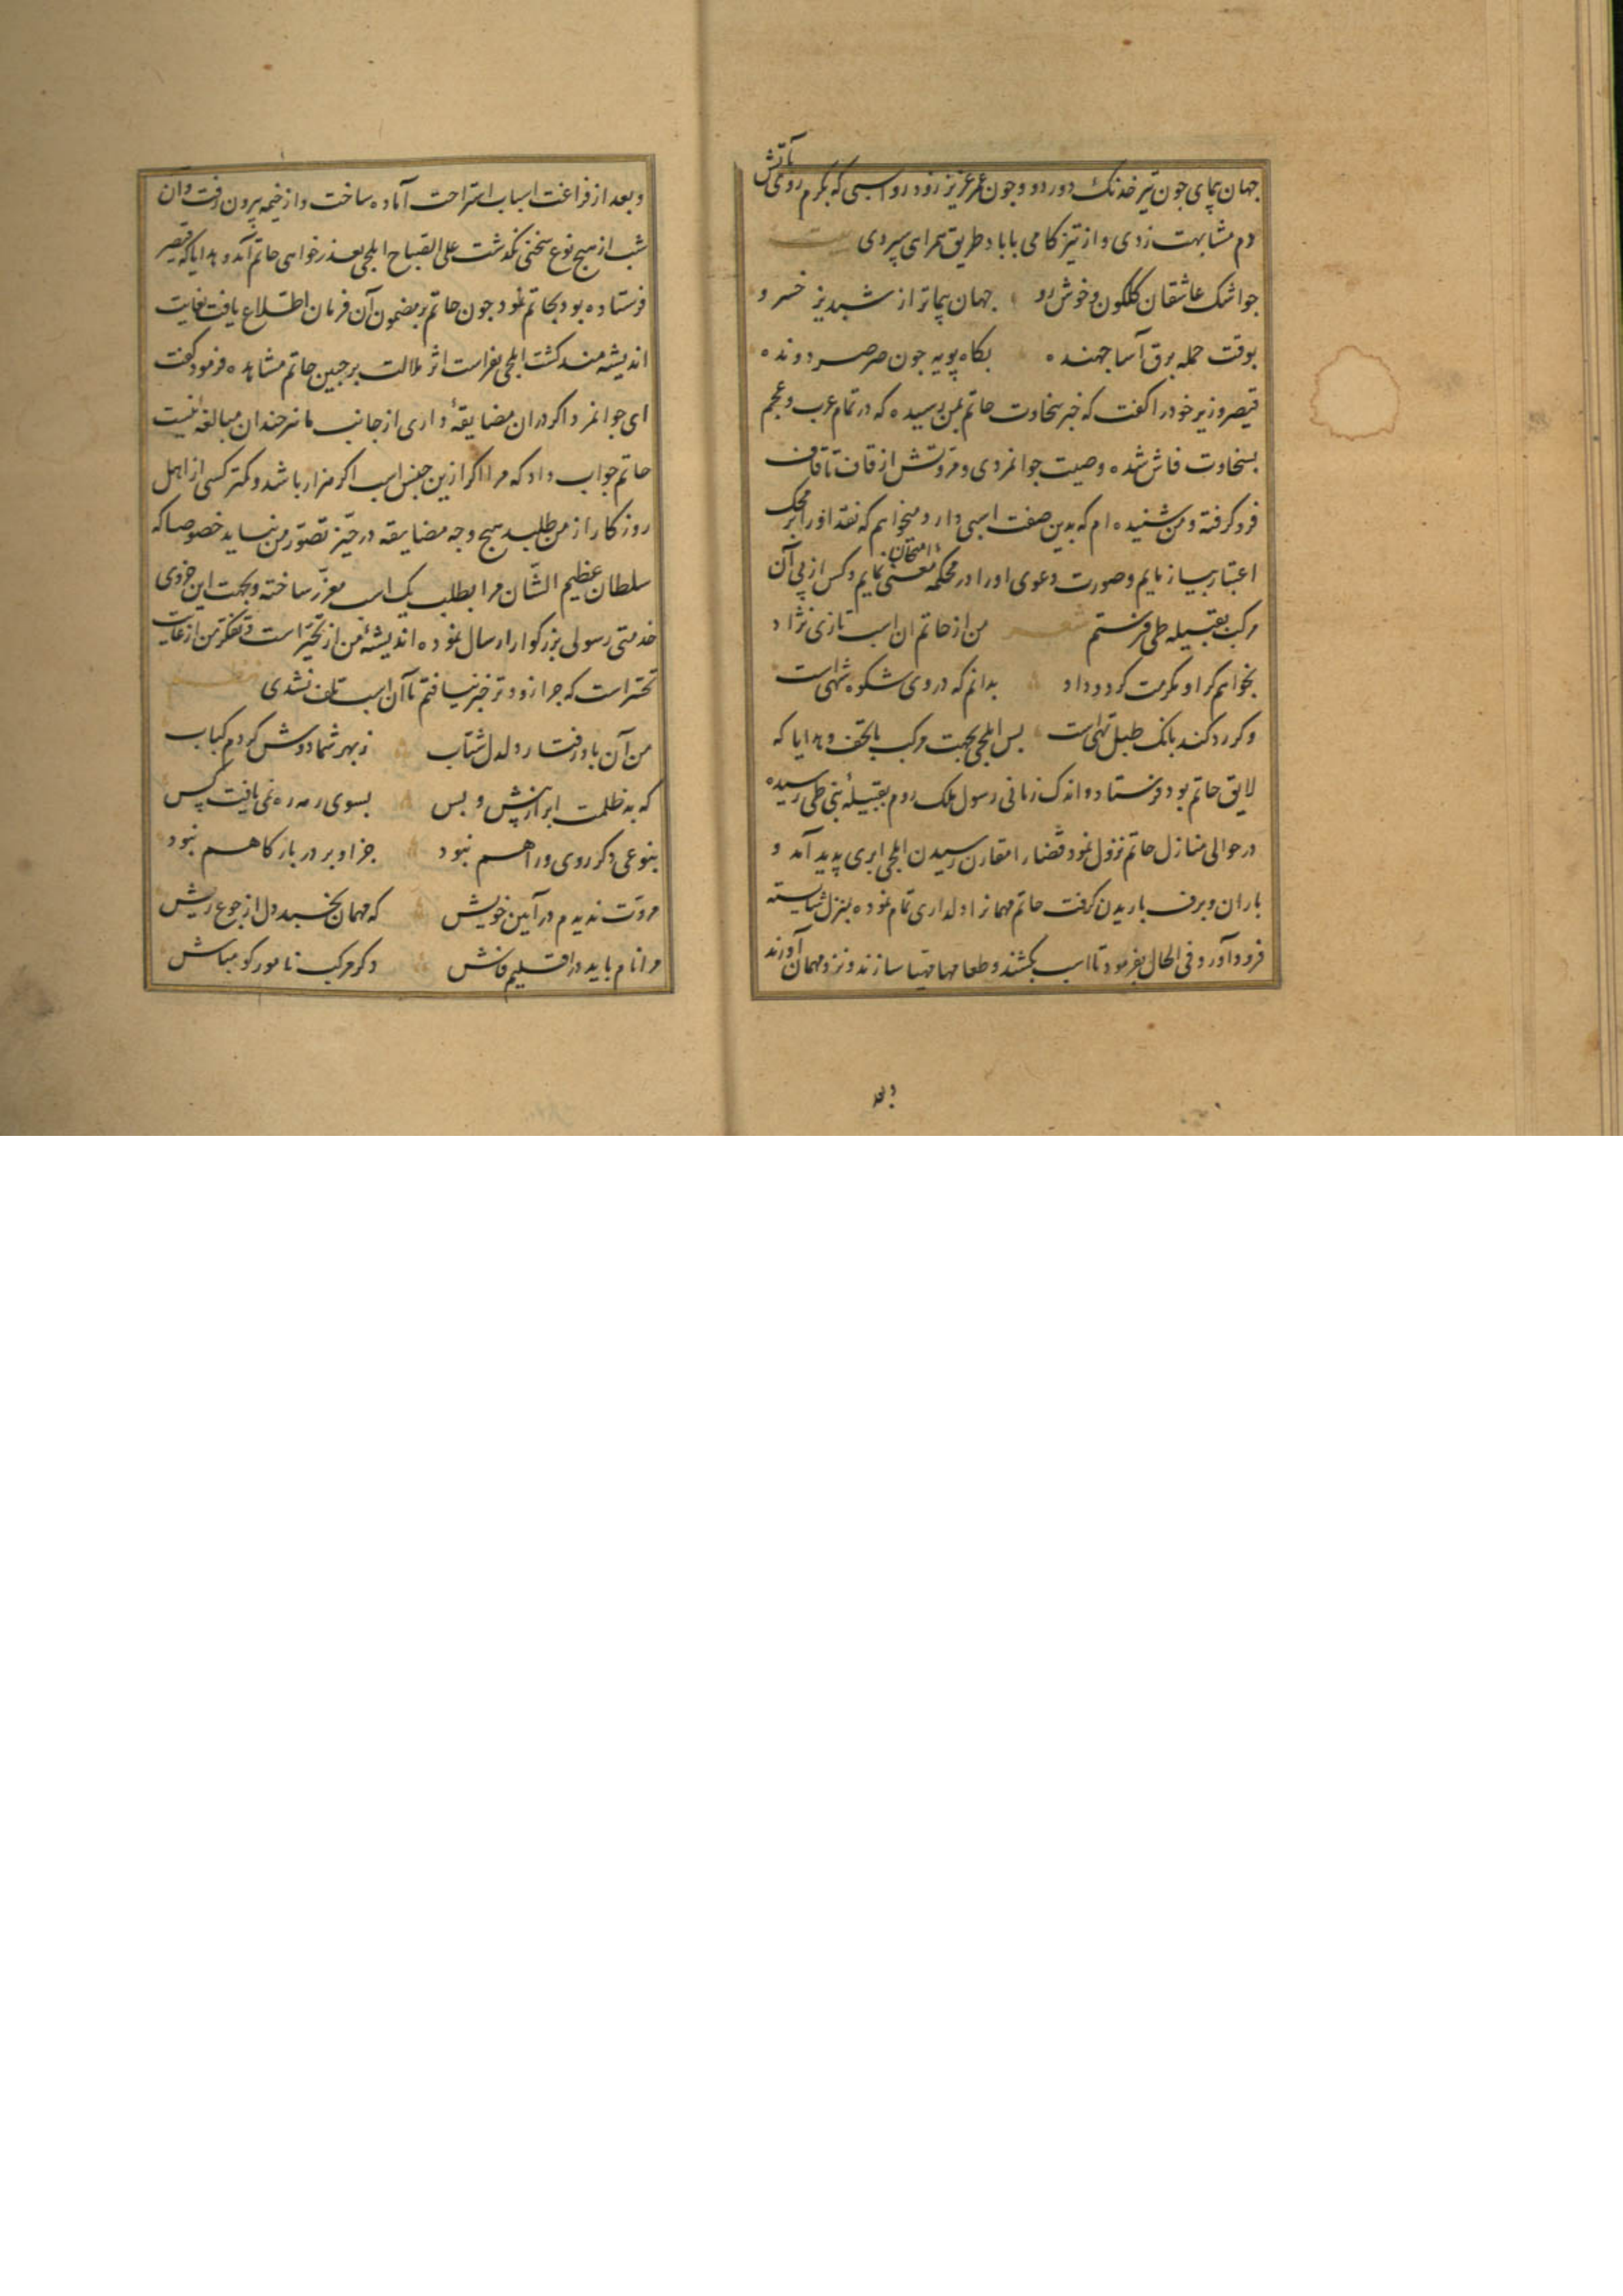 جهان پیمای جون تیر خدنک دور دو و جون عمر عزیز زود رو اسبی که بکرم روئی با آتش
دم مشابهت زدی و از تیز کامی با باد طریق همراهی سپردی بیت
جو اشک عاشقان کلکون و خوش رو جهان پیماتر از شبدیز خسرو
بوقت حمله برق آسا جهنده بکاه پویه جون صرصر دونده
قیصر وزیر خود را کفت که خبر سخاوت حاتم بمن رسیده که در تمام عرب و عجم
بسخاوت فاش شده وصیت جوانمردی و مروتش از قاف تا قاف
فرو کرفته و من شنیده ام که بدین صفت اسبی دارد و میخواهم که نقد او را بر محک
اعتبار بیازمایم و صورت دعوی او را در محکمه امتحان معنی نمایم و کس از پی آن
مرکب بقبیله طی فرستم شعر من از حاتم ان اسب تازی نژاد
بخواهم کر او مکرمت کرد و داد بدانم که در وی شکوه شهی است
وکر رد کند بانک طبل تهی است بس ایلجی بجهت مرکب با تحف و هدایا که
لایق حاتم بود فرستاد و اندک زمانی رسول ملک روم بقبیلهٔ بنی طی رسیده
در حوالی منازل حاتم نزول نمود قضا را مقارن رسیدن ایلجی ابری پدید آمد و
باران و برف باریدن کرفت حاتم مهمانرا دلداری تمام نموده بمنزل شایسته
فرود آورد و فی الحال بفرمود تا اسب بکشند و طعامها مهیا سازند و نزد مهمان آورند
وبعد
و بعد از فراغت اسباب استراحت آماده ساخت و از خیمه بیرون رفت و آن
شب از هیج نوع سخنی نکذشت علی الصباح ایلجی بعذر خواهی حاتم آمد و هدایا که قیصر
فرستاده بود بحاتم نمود جون حاتم بر مضمون آن فرمان اطلاع یافت بغایت
اندیشه مند کشت ایلجی بفراست اثر ملالت بر جبین حاتم مشاهده فرمود کفت
ای جوانمرد اکر دران مضایقهٔ داری از جانب ما نیز جندان مبالغهٔ نیست
حاتم جواب داد که مرا اکر ازین جنس اسب اکر هزار باشد و کمتر کسی از اهل
روزکار از من طلبد هیج وجه مضایقه در حیز تصور من نیاید خصوصا که
سلطان عظیم الشان مرا بطلب یک اسب معزز ساخته و بجهت این جزوی
خدمتی رسولی بزرکوار ارسال نموده اندیشهٔ من از تحیر است و تفکر من از غایت
تحسر است که جرا زودتر خبر نیافتم تا آن اسب تلف نشدی نظم
من آن باد رفتار دلدل شتاب ز بهر شما دوش کردم کباب
که به ظلمت ابر از پیش و بس بسوی رمه ره نمی یافت کس
بنوعی دکر روی و راهم نبود جز او بر در بارکاهم نبود
مروت ندیدم در آیین خویش که مهمان بخسبد دل از جوع ریش
مرا نام باید در اقلیم فاش دکر مرکب نامور کو مباش